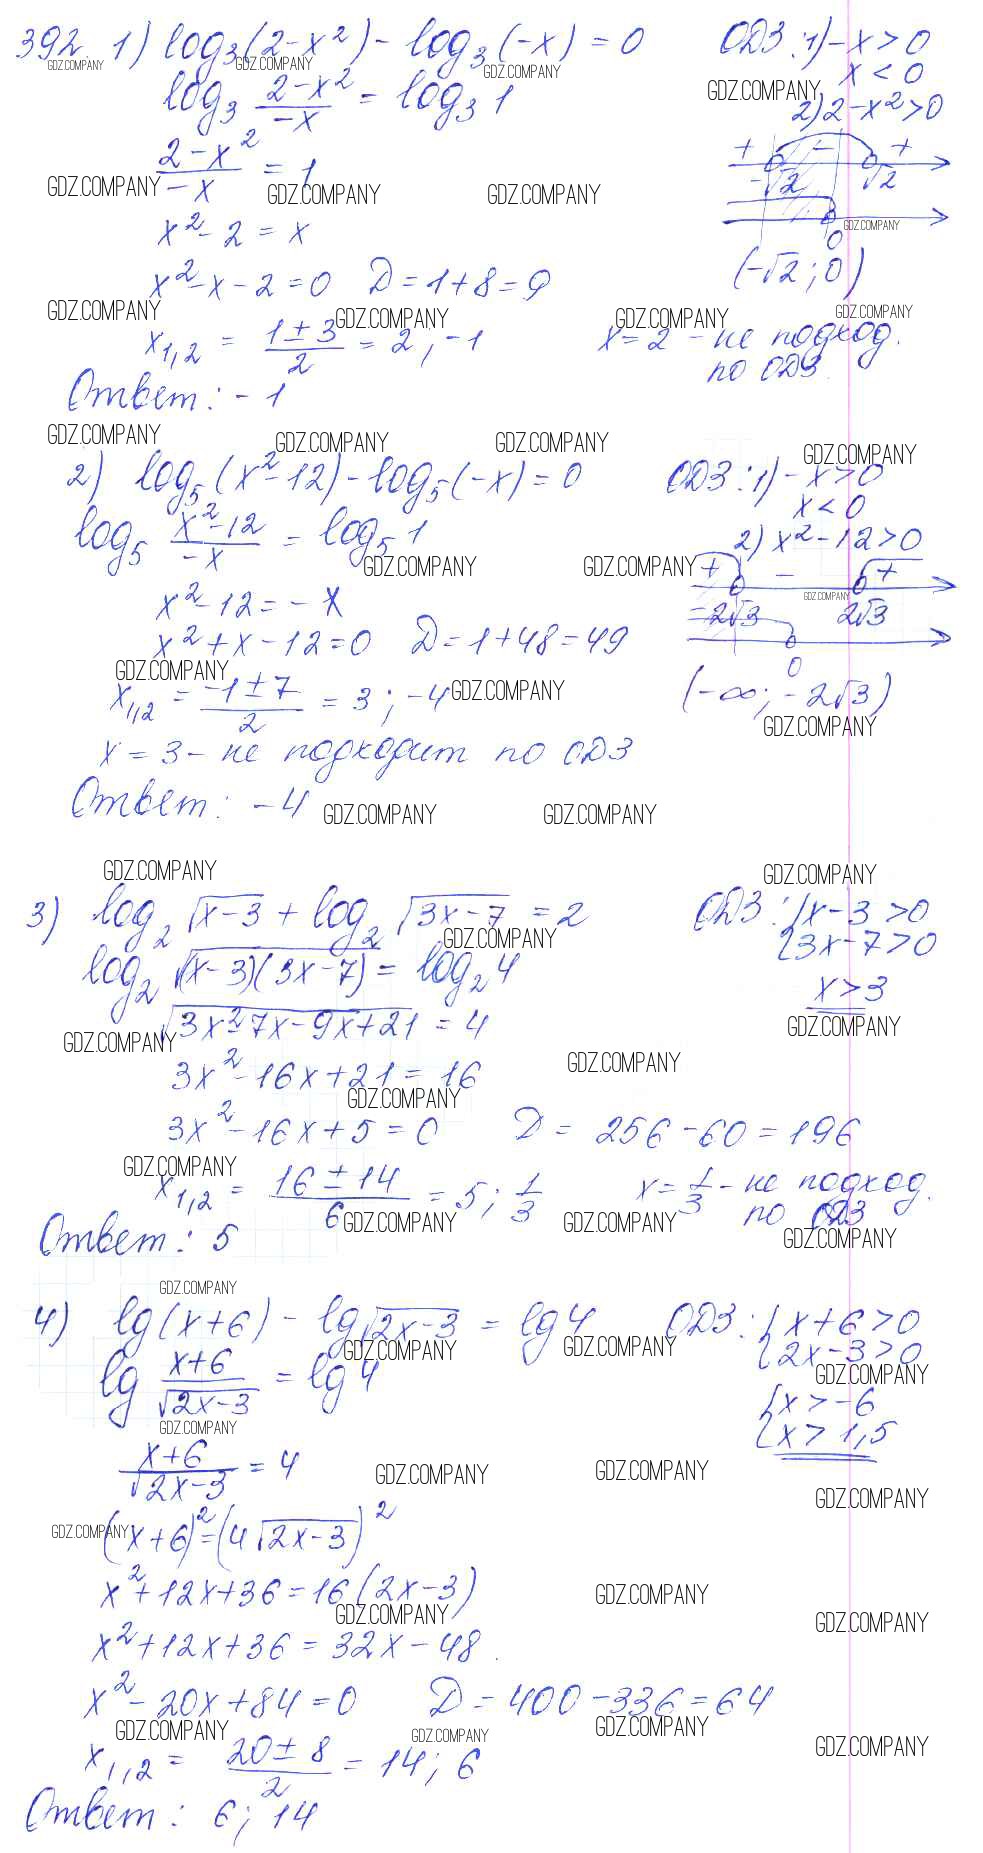 392. 1) log₃(2-x²) - log₃(-x) = 0 ОДЗ: 1) -x > 0
x < 0
log₃ (2-x²)/(-x) = log₃ 1
2) 2-x² > 0
(2-x²)/(-x) = 1
+ - +
-√2 √2
x² - 2 = x
0
x² - x - 2 = 0 D = 1+8 = 9 (-√2; 0)
x₁,₂ = (1±3)/2 = 2; -1 x = 2 - не подход.
по ОДЗ.
Ответ: -1
2) log₅(x²-12) - log₅(-x) = 0 ОДЗ: 1) -x > 0
x < 0
log₅ (x²-12)/(-x) = log₅ 1
2) x²-12 > 0
+ - +
x²-12 = -x
-2√3 2√3
x² + x - 12 = 0 D = 1+48 = 49
0
x₁,₂ = (-1±7)/2 = 3; -4 (-∞; -2√3)
x = 3 - не подходит по ОДЗ
Ответ: -4
3) log₂ √(x-3) + log₂ √(3x-7) = 2 ОДЗ: { x-3 > 0
{ 3x-7 > 0
log₂ √((x-3)(3x-7)) = log₂ 4
x > 3
√(3x²-7x-9x+21) = 4
3x² - 16x + 21 = 16
3x² - 16x + 5 = 0 D = 256 - 60 = 196
x₁,₂ = (16±14)/6 = 5; 1/3 x = 1/3 - не подход.
по ОДЗ
Ответ: 5
4) lg(x+6) - lg√(2x-3) = lg 4 ОДЗ: { x+6 > 0
{ 2x-3 > 0
lg (x+6)/√(2x-3) = lg 4
{ x > -6
{ x > 1,5
(x+6)/√(2x-3) = 4
(x+6)² = (4√(2x-3))²
x² + 12x + 36 = 16(2x-3)
x² + 12x + 36 = 32x - 48.
x² - 20x + 84 = 0 D = 400 - 336 = 64
x₁,₂ = (20±8)/2 = 14; 6
Ответ: 6; 14
GDZ.COMPANY